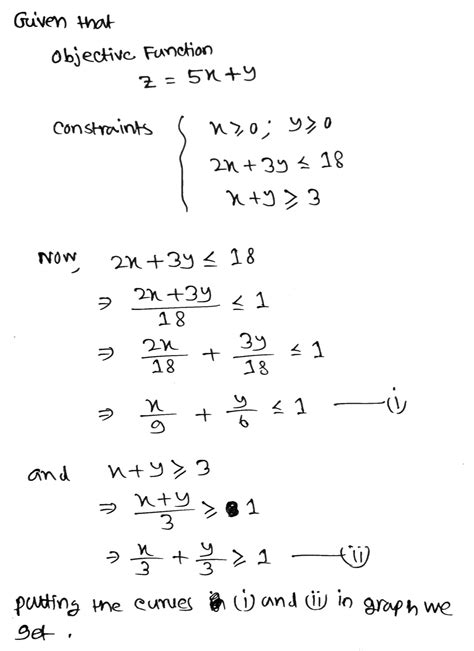 Given that
Objective Function
z = 5x+y
Constraints { x⩾0; y⩾0
2x+3y ≤ 18
x+y ⩾ 3
Now, 2x+3y ≤ 18
⇒ (2x+3y)/18 ≤ 1
⇒ 2x/18 + 3y/18 ≤ 1
⇒ x/9 + y/6 ≤ 1 —(i)
and x+y ⩾ 3
⇒ (x+y)/3 ⩾ 1
⇒ x/3 + y/3 ⩾ 1 —(ii)
putting the curves (i) and (ii) in graph we
get.